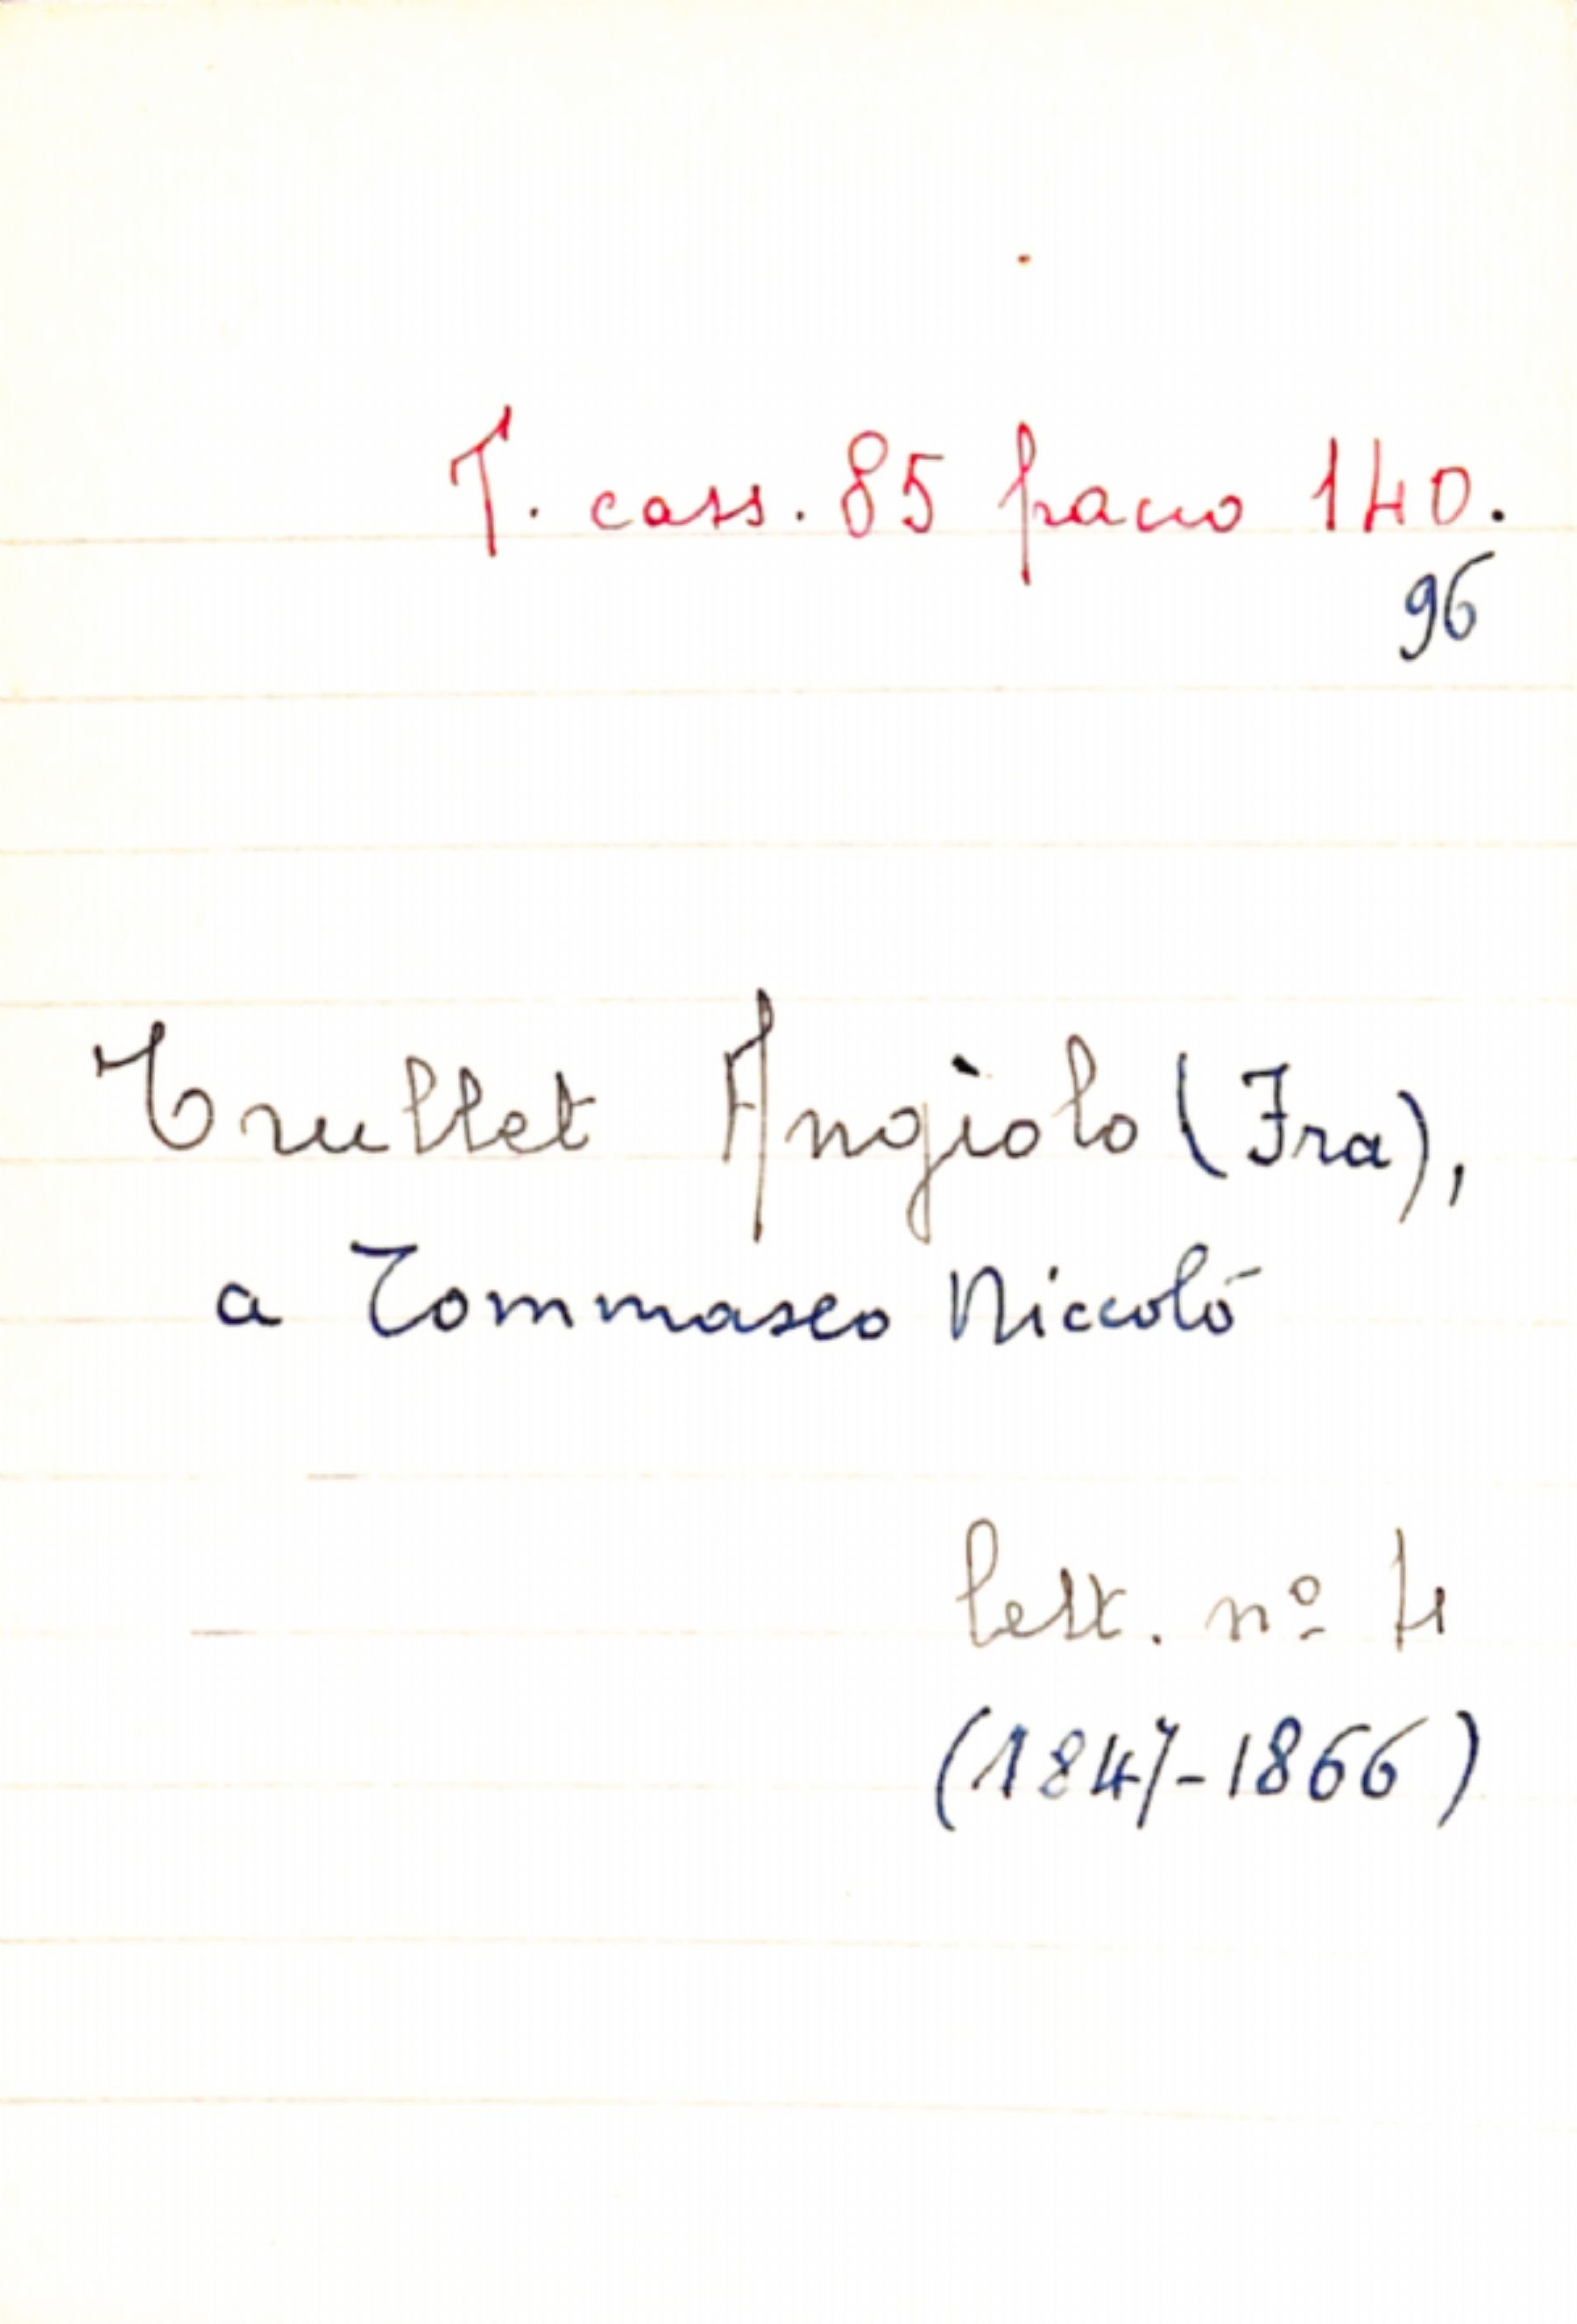 T. cass. 85 pacco 140.
96
Trullet Angiolo (Fra),
a Tommaseo Niccolò
lett. nº 4
(1847-1866)